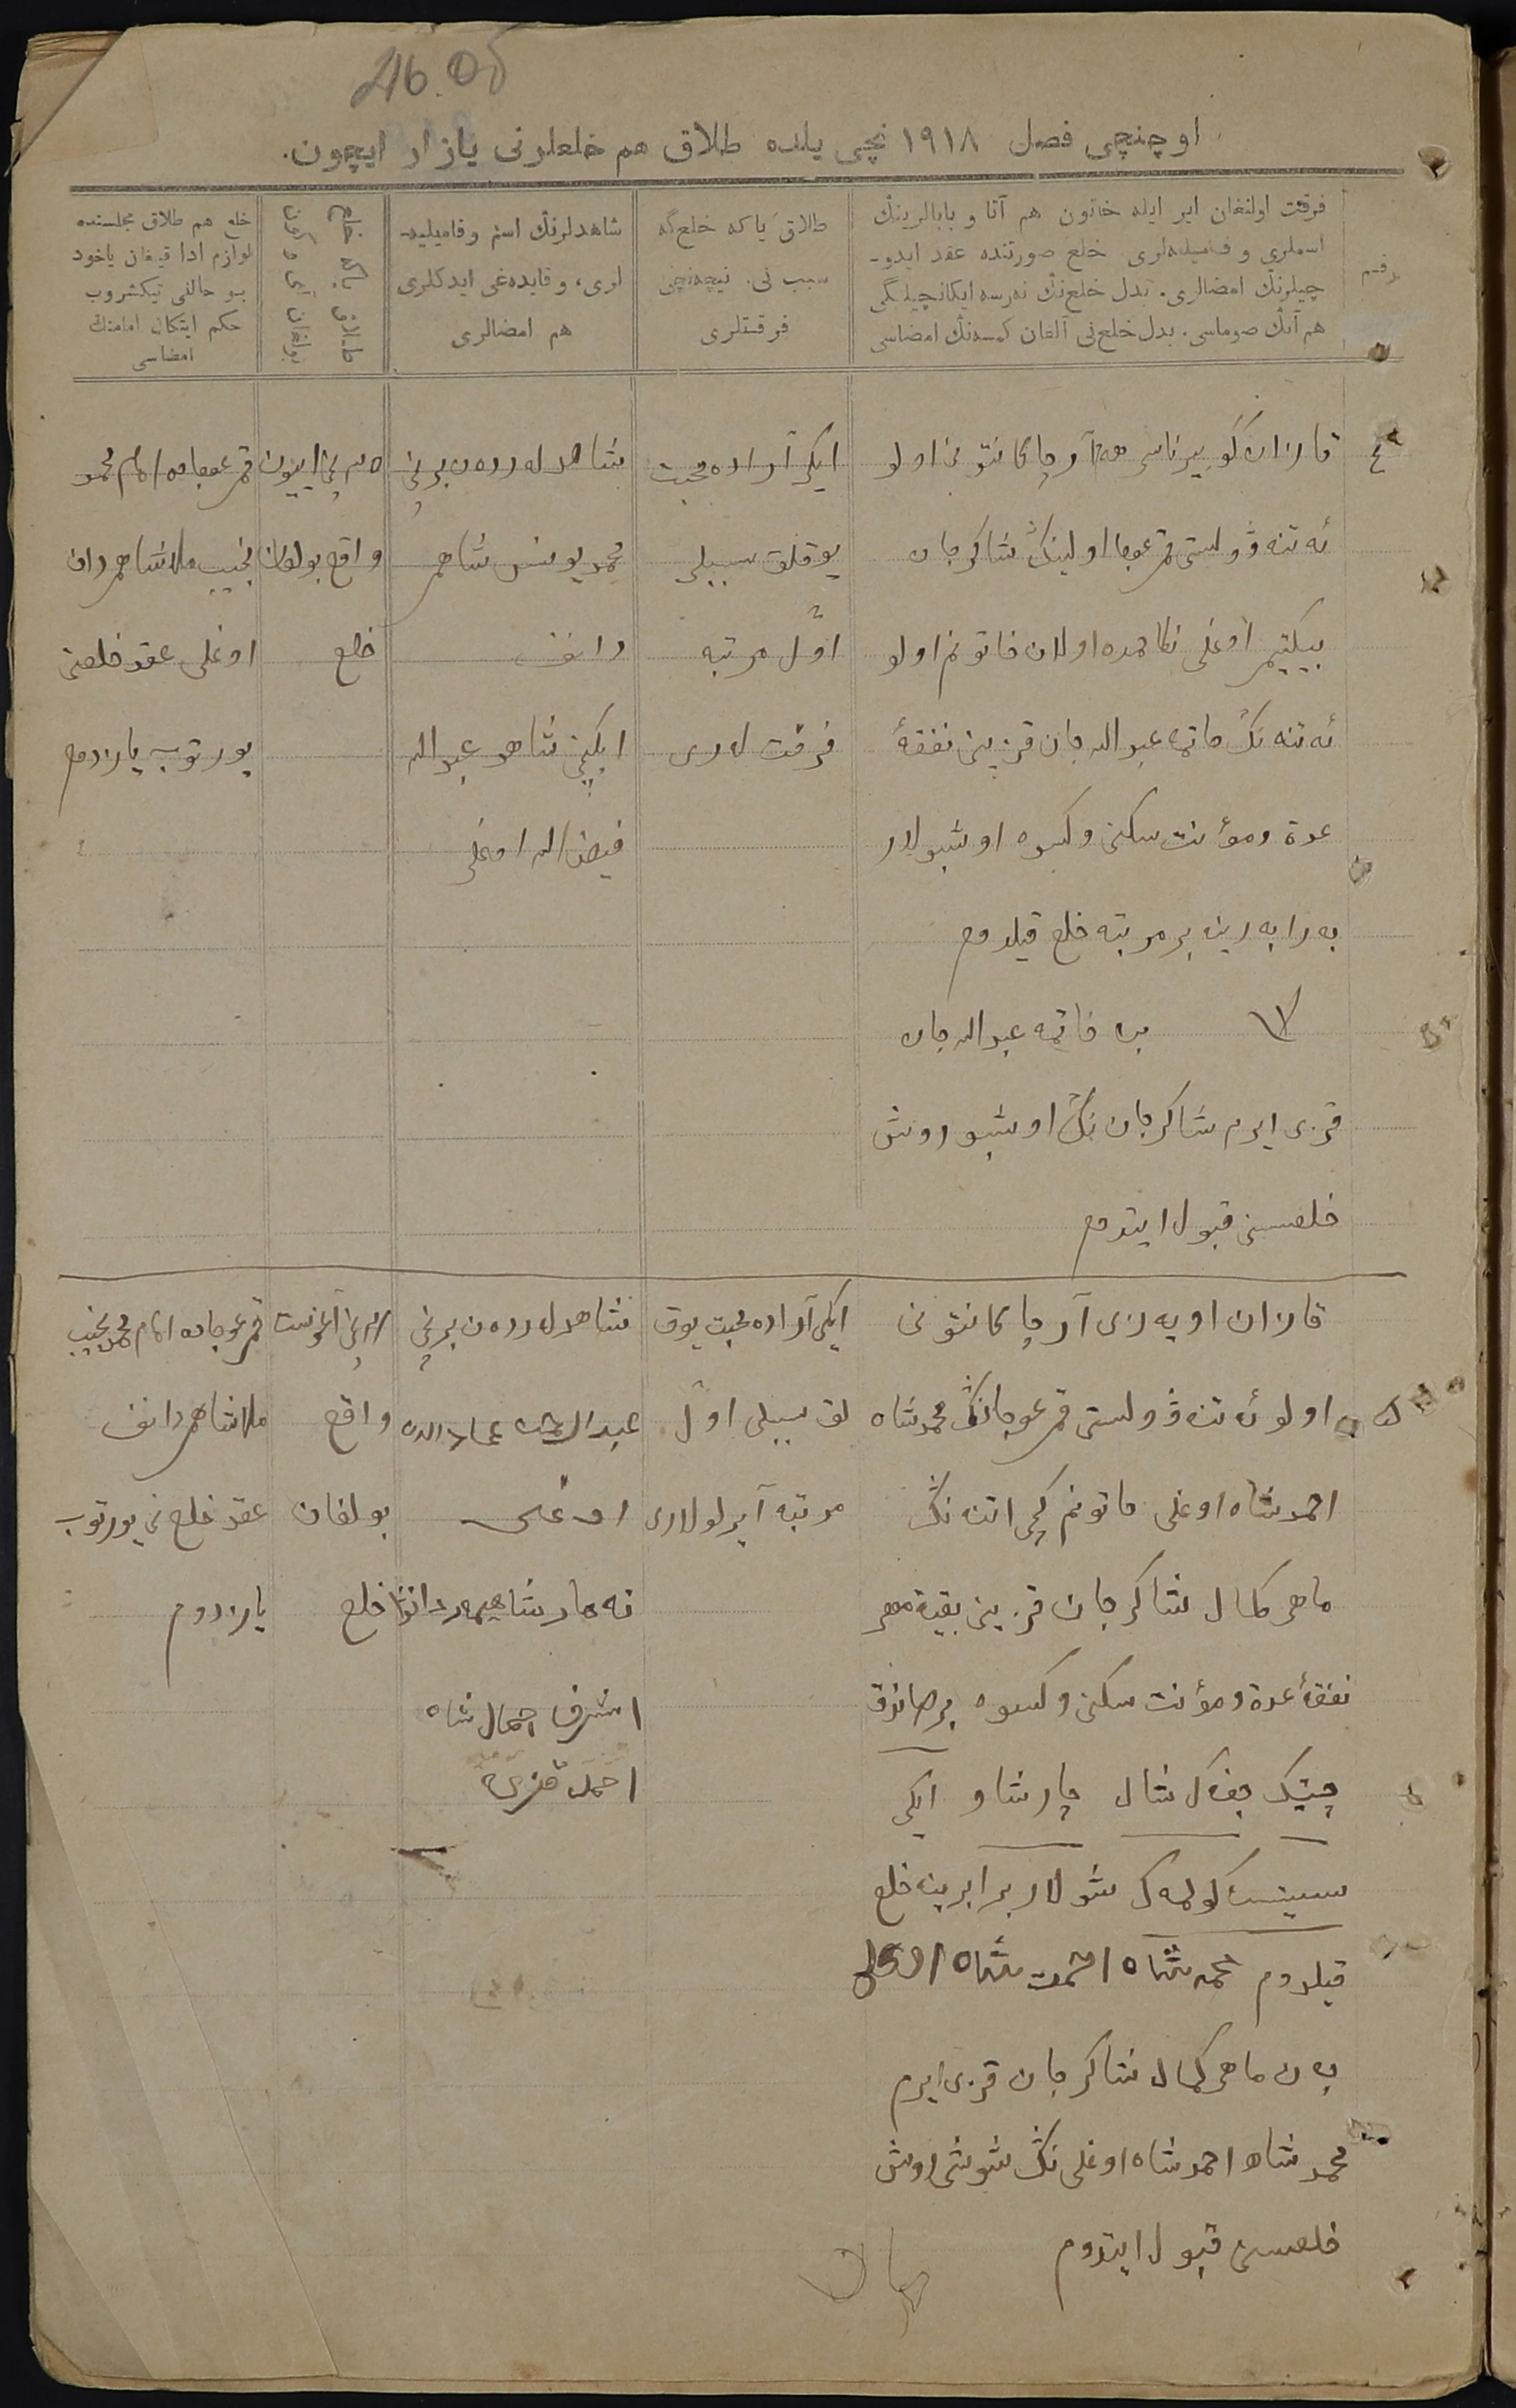 اوچنچی فصل ۱۹۱۸ نچی یلده طلاق هم خلعلرنی یازار ایچون.
رقم
فرقت اولنغان ایر ایله خاتون هم آتا و بابالرینڭ
اسملری و فامیلیه‌لری. خلع صورتنده عقد ایدو-
چیلرنڭ امضالری. بدل خلع‌نڭ نه‌رسه ایکانچیلیگی
هم آنڭ صوماسی. بدل خلع‌نی آلغان کمسه‌نڭ امضاسی
طلاق یا که خلع گه
سبب نی. نیچه‌نچی
فرقتلری
شاهدلرنڭ اسم و فامیلیه-
لری، و قایده‌غی ایدکلری
هم امضالری
طلاق یا که خلع
بولغان آی و کون
خلع هم طلاق مجلسنده
لوازم ادا قیلغان یاخود
بو حالنی تیکشروب
حکم ایتکان امامنڭ
امضاسی
قازان گوبیرناسی هم آرچا کانتونی اولو
ئه‌تنه ۋولستی قمرعوجا اولینڭ شاکرجان
بیکتیمر اوغلی نکاحمده اولان خاتونم اولو
ئه‌تنه نڭ فاتمه عبدالله جان قزینی نفقهٔ
عدة ومؤنت سکنی وکسوه اوشبولار
به‌رابه‌رینه بر مرتبه خلع قیلدوم
بن فاتمه عبدالله جان
قزی ایرم شاکرجان نڭ اوشبو روش
خلعسنی قبول ایتدوم
ایکی آراده محبت
یوقلق سببلی
اوّل مرتبه
فرقت لاری
شاهدله‌رده‌ن برنچی
محمدیونس شاهمر
دانف
ایکنچی شاهد عبدالله
فیض الله اوغلی
واقع بولغان
خلع
قمرعوجاده امام محمد
نجیب ملاشاهمردان
اوغلی عقد خلعنی
یورتوب یازدوم
قازان اویه‌زی آرچا کانتونی
اولو ئه‌تنه ۋولستی قمرعوجانڭ محمدشاه
احمدشاه اوغلی خاتونم کچی اتنه نڭ
ماهرکمال شاکرجان قزینی بقیهٔ مهر
نفقهٔ عدة ومؤنت سکنی وکسوه بر صاندق
چیتیک شال چارشاو ایکی
سیتسه کولمه‌ک شولار برابرینه خلع
قیلدوم محمدشاه احمت شاه اوغلی
به‌ن ماهرکمال شاکرجان قزی ایرم
محمدشاه احمدشاه اوغلی نڭ شوشی روش
خلعسنی قبول ایتدوم
ایکی آراده محبت یوق
لق سببلی اوّل
مرتبه آیرلولاری
شاهدله‌رده‌ن برنچی
اوغلی
اشرف جمال شاه
احمد قزی
آغوست
واقع
بولغان
خلع
قمرعوجاده امام محمدنجیب
ملاشاهمردانف
عقد خلع نی یورتوب
یازدوم